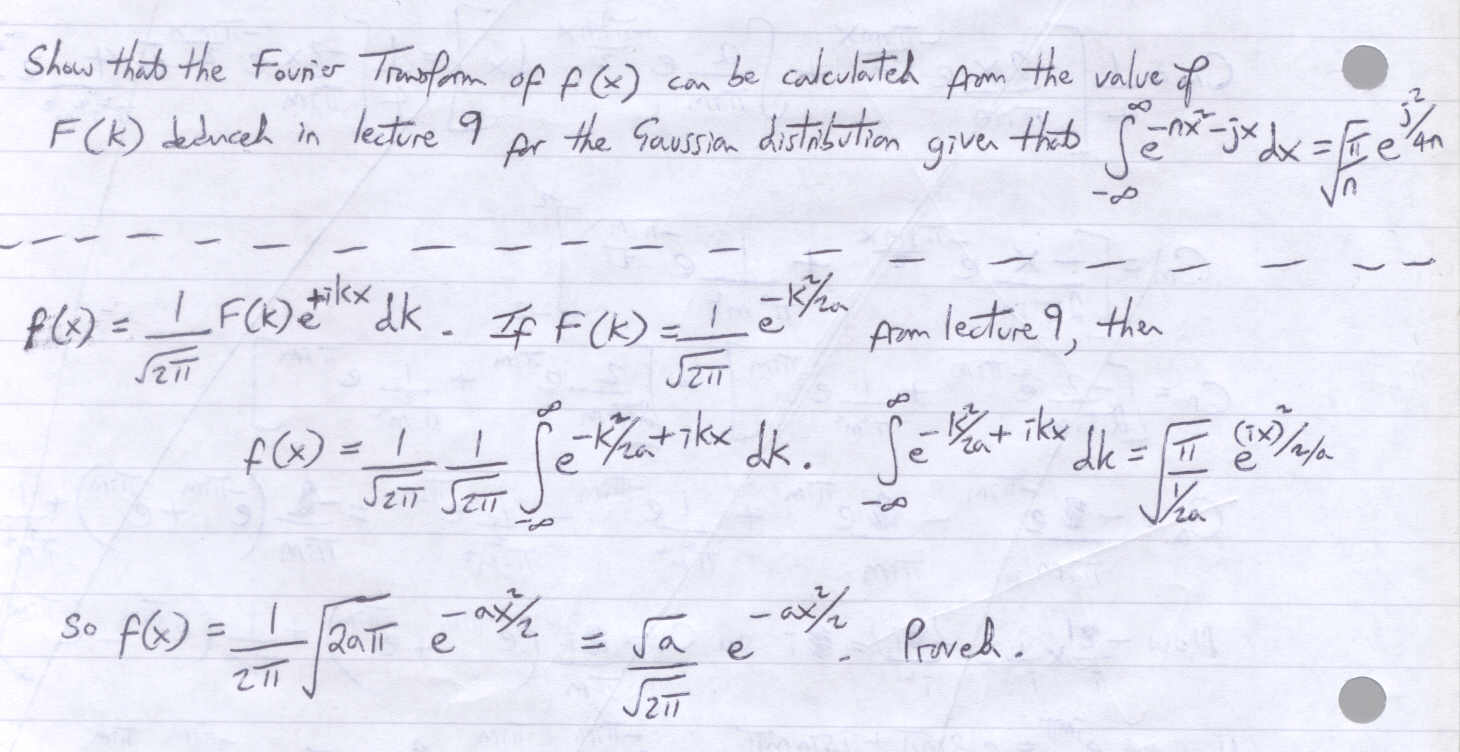 Show that the Fourier Transform of f(x) can be calculated from the value of
F(k) deduced in lecture 9 for the Gaussian distribution given that ∫_{-∞}^{∞} e^{-nx²-jx} dx = √(π/n) e^{j²/4n}
f(x) = 1/√2π F(k) e^{+ikx} dk. If F(k) = 1/√2π e^{-k²/2a} from lecture 9, then
f(x) = 1/√2π 1/√2π ∫_{-∞}^{∞} e^{-k²/2a + ikx} dk. ∫_{-∞}^{∞} e^{-k²/2a + ikx} dk = √(π/(1/2a)) e^{(ix)²/2/a}
So f(x) = 1/2π √2aπ e^{-ax²/2} = √a/√2π e^{-ax²/2}. Proved.